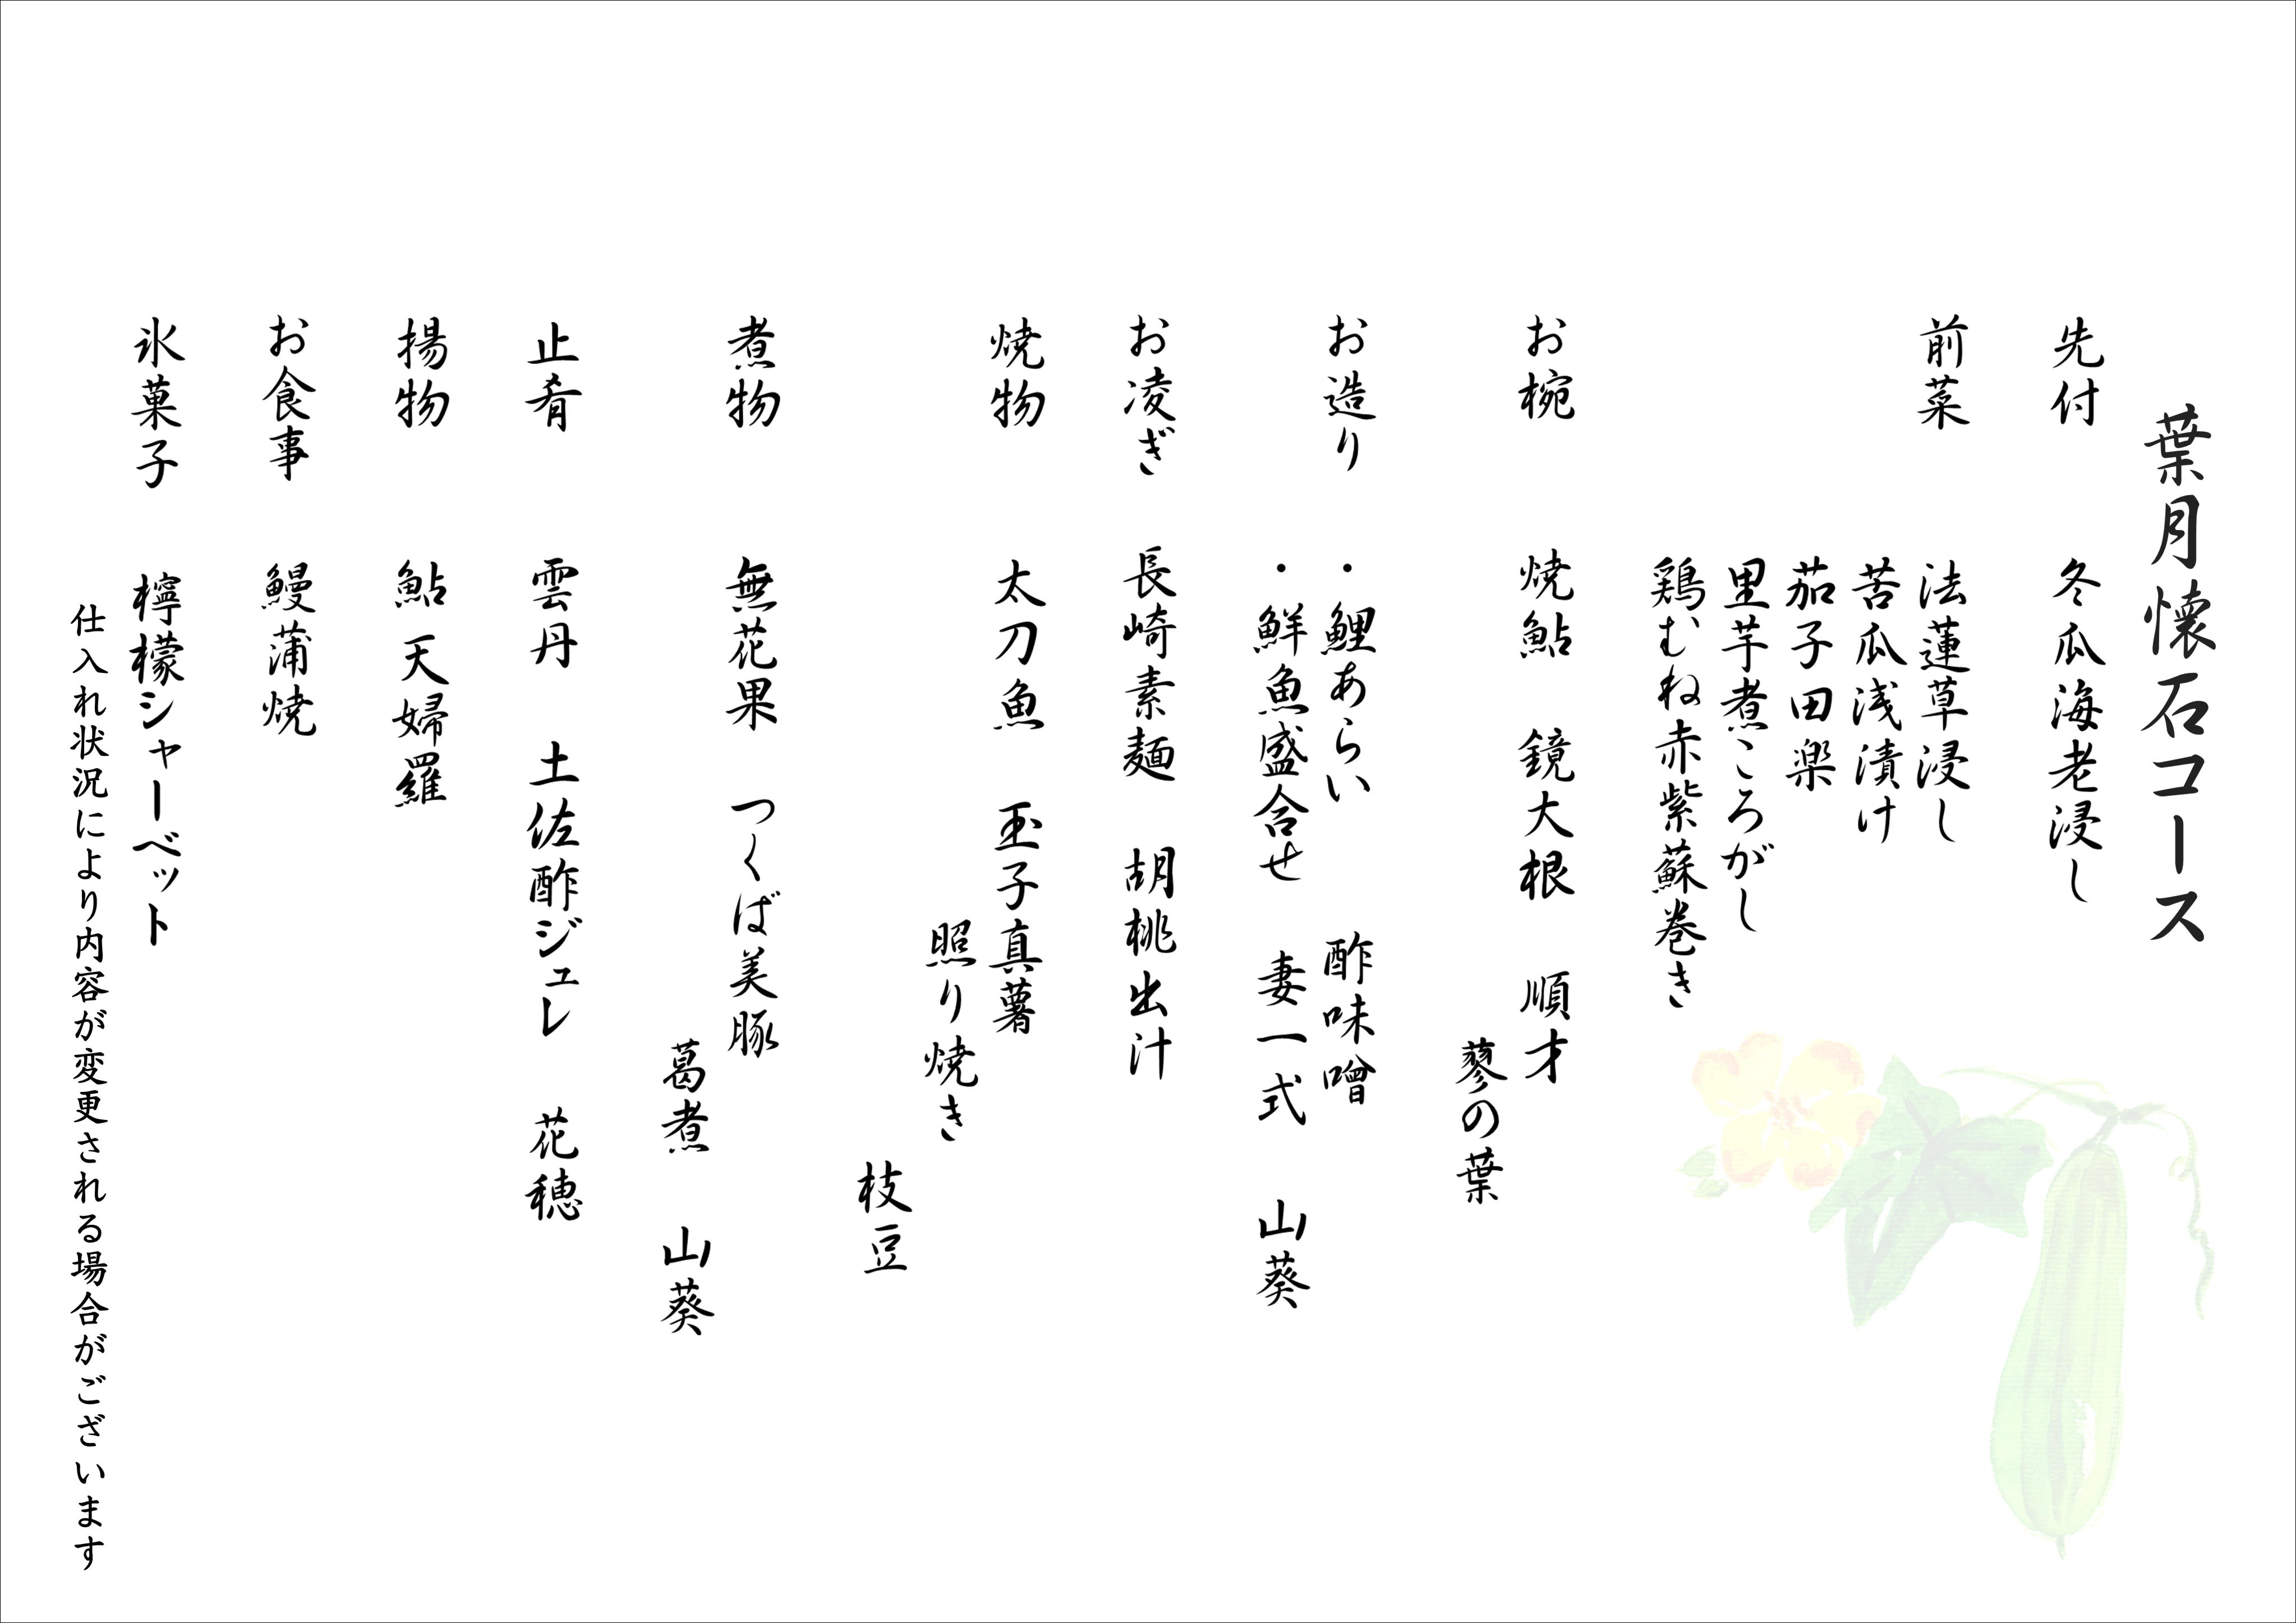 葉月懐石コース
先付　冬瓜海老浸し
前菜　法蓮草浸し
苦瓜浅漬け
茄子田楽
里芋煮ころがし
鶏むね赤紫蘇巻き
お椀　焼鮎　鏡大根　順才
蓼の葉
お造り　・鯉あらい　酢味噌
・鮮魚盛合せ　妻一式　山葵
お凌ぎ　長崎素麺　胡桃出汁
焼物　太刀魚　玉子真薯
照り焼き
枝豆
煮物　無花果　つくば美豚
葛煮　山葵
止肴　雲丹　土佐酢ジュレ　花穂
揚物　鮎天婦羅
お食事　鰻蒲焼
氷菓子　檸檬シャーベット
仕入れ状況により内容が変更される場合がございます